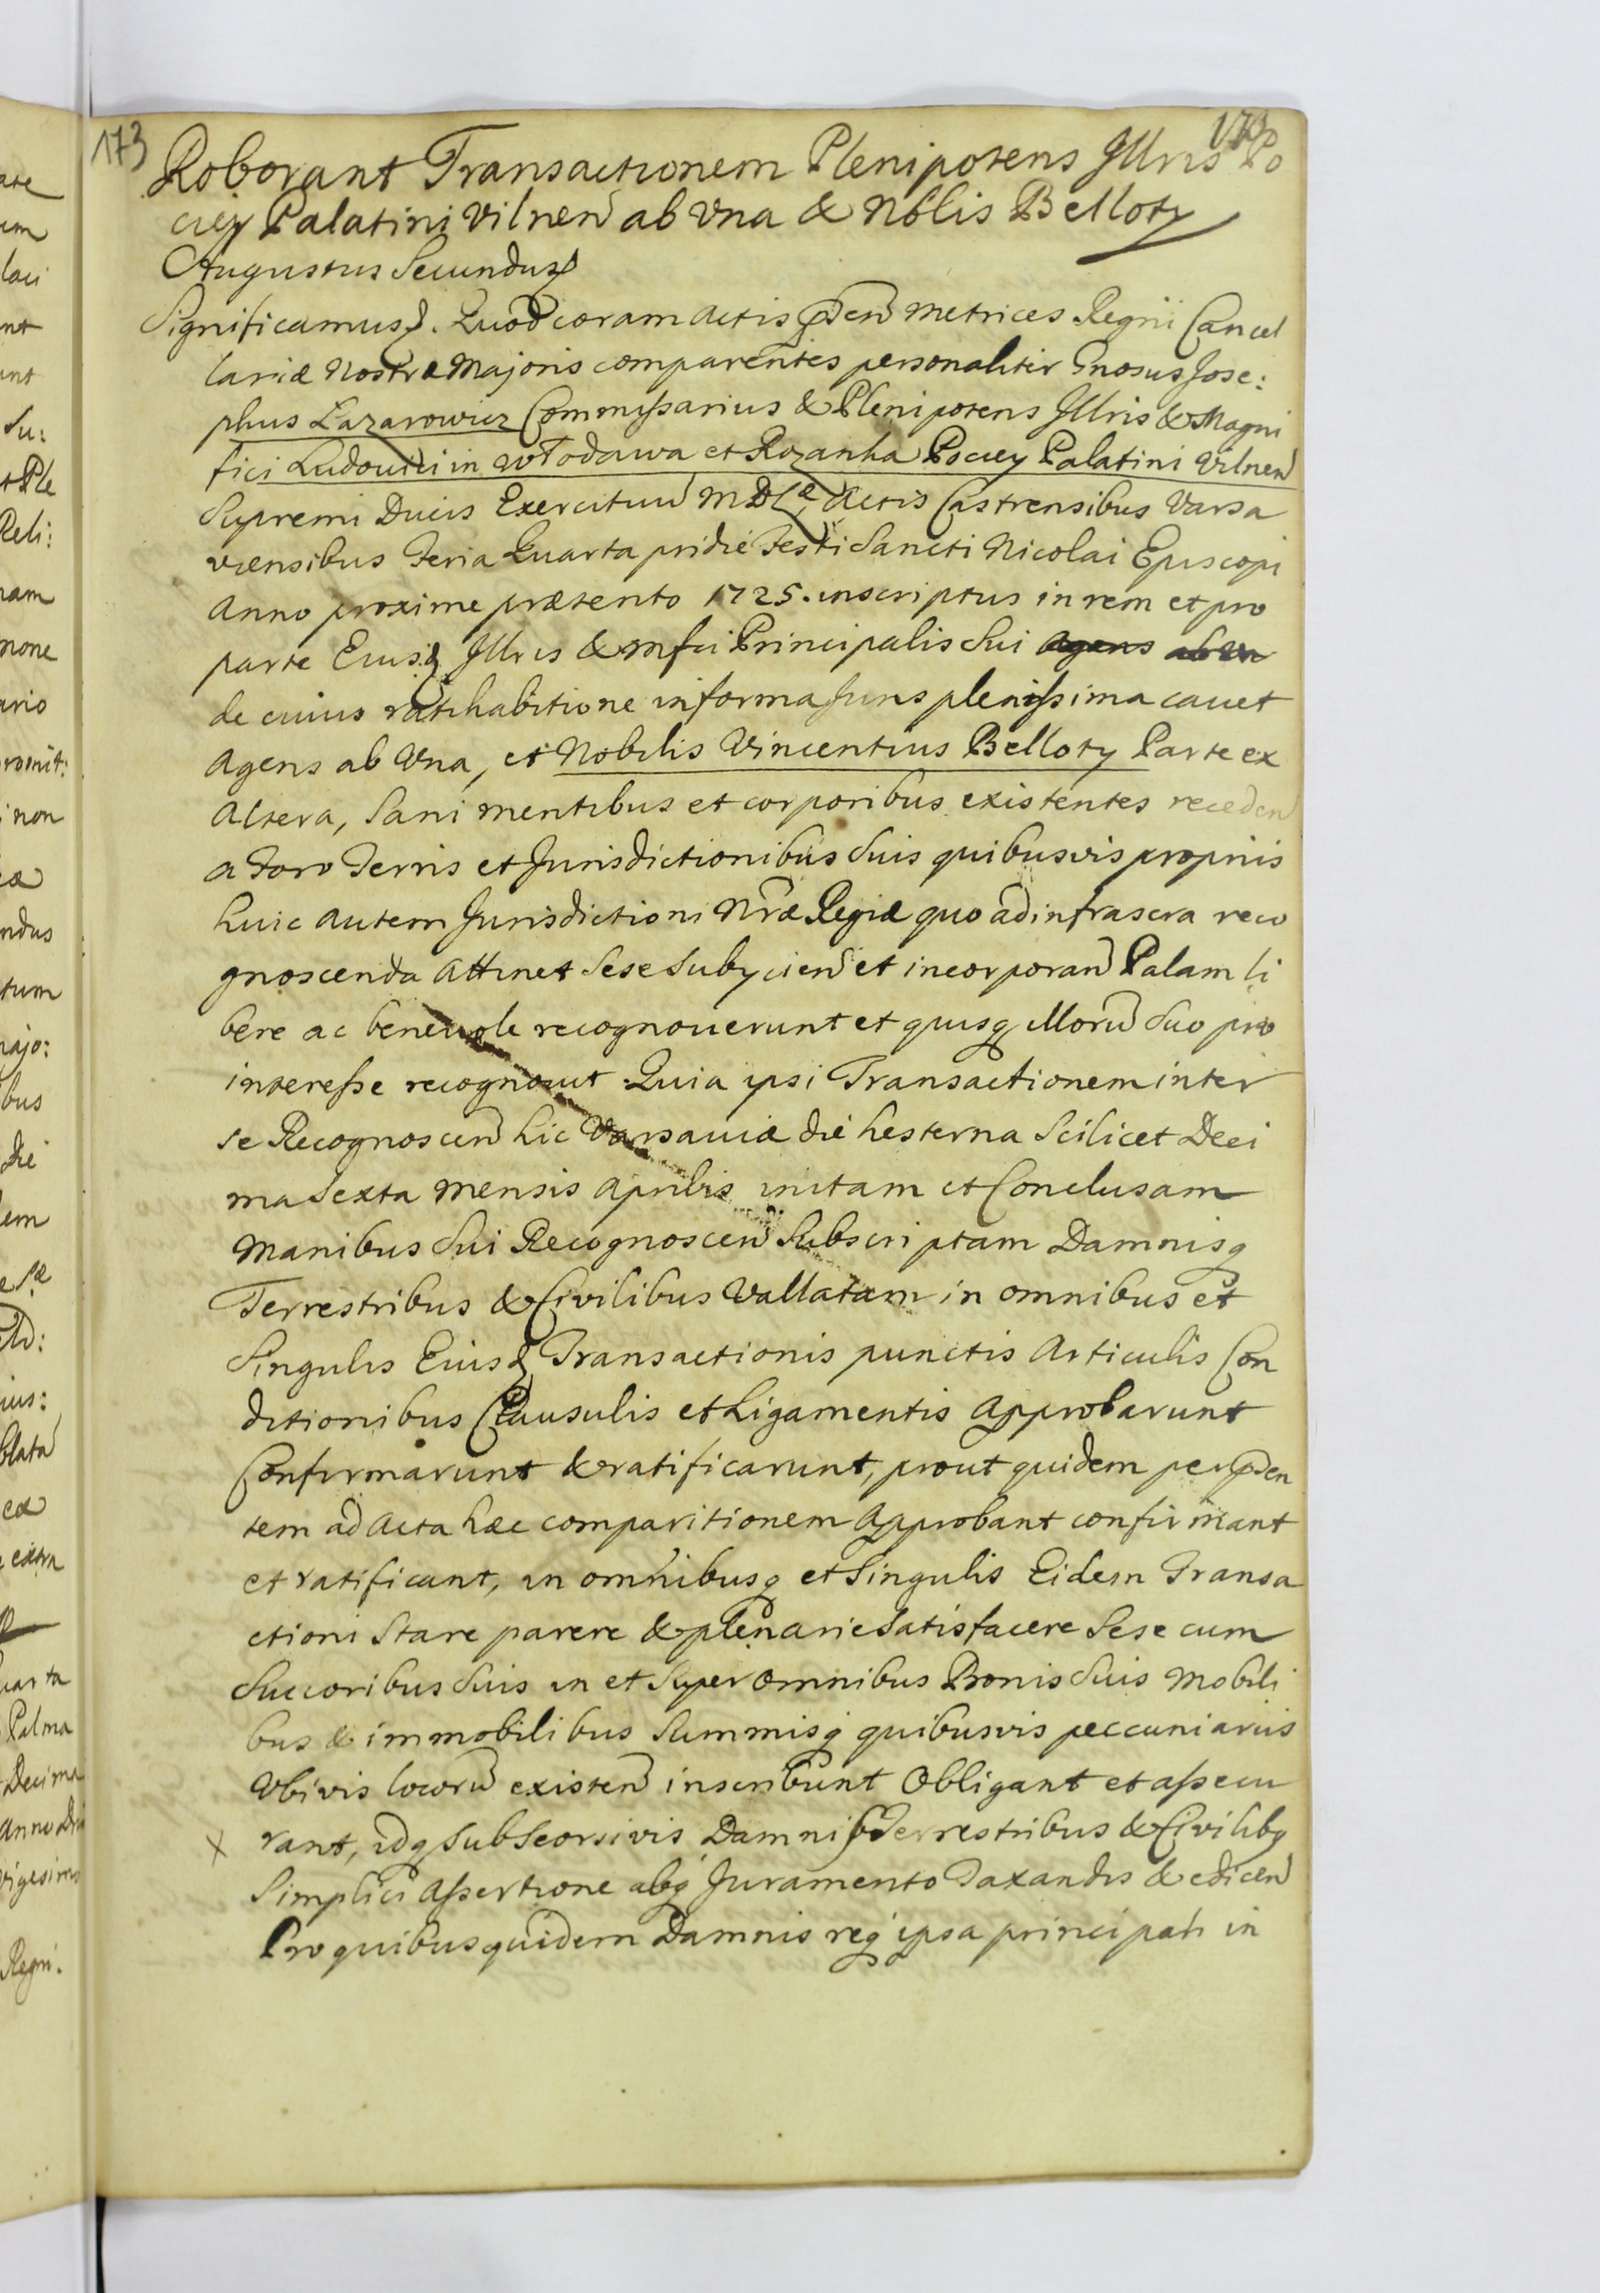 173
173
Roborant Transactionem Plenipotens Jllris Po
ciey Palatini Vilnen ab Vna & Nblis Belloty
Augustus Secundus
Significamus. Quod coram Actis pñen Metrices Regni Cancel
lariæ Nostræ Majoris comparentes personaliter Gnosus Jose:
phus Lazarowicz Commissarius & Plenipotens Jllris & Magni
fici Ludovici in Włodawa et Rozanka Pociey Palatini Vilnen
Supremi Ducis Exercituu M D L Actis Castrensibus Varsa
viensibus Feria Quarta pridie Festi Sancti Nicolai Episcopi
Anno proxime præterito 1725. inscriptus in rem et pro
parte Eiusd Jllris & Mfci Principalis Sui agens ab Vn
de cuius ratihabitione in forma Juris plenissima cavet
Agens ab Vna, et Nobilis Vincentius Belloty Parte ex
Altera, Sani mentibus et corporibus existentes receden
a Foro Terris et Jurisdictionibus Suis quibusvis proprijs
huic autem Jurisdictioni Nræ Regiæ quo ad infrascra reco
gnoscenda Attinet Sese Subycien et incorporan Palam li
bere ac benevole recognouerunt et quisq illoru Suo pro
interesse recognoscit Quia ipsi Transactionem inter
se Recognoscen hic Varsaviæ die hesterna Scilicet Deci
ma Sexta Mensis Aprilis initam et Conclusam
Manibus Sui Recognoscen Subscriptam Damnisq
Terrestribus & Civilibus Vallatam in omnibus et
Singulis Eiusd Transactionis punctis Articulis Con
ditionibus Clausulis et Ligamentis Approbarunt
Confirmarunt & ratificarunt, prout quidem per pñen
tem ad Acta hæc comparitionem Approbant confirmant
et ratificant, in omnibusq et Singulis Eidem Transa
ctioni Stare parere & plenarie Satisfacere Sese cum
Succoribus Suis in et Super omnibus Bonis Suis Mobili
bus & immobilibus Summisq quibusvis peccuniariis
Vbivis locoru existen inscribunt Obligant et assecu
X rant, idq sub Seorsivis Damnis Terrestribus & Civilibq
Simplici Assertione absq Juramento Taxandis & edicen
Pro quibus quidem Damnis req ipsa principali in